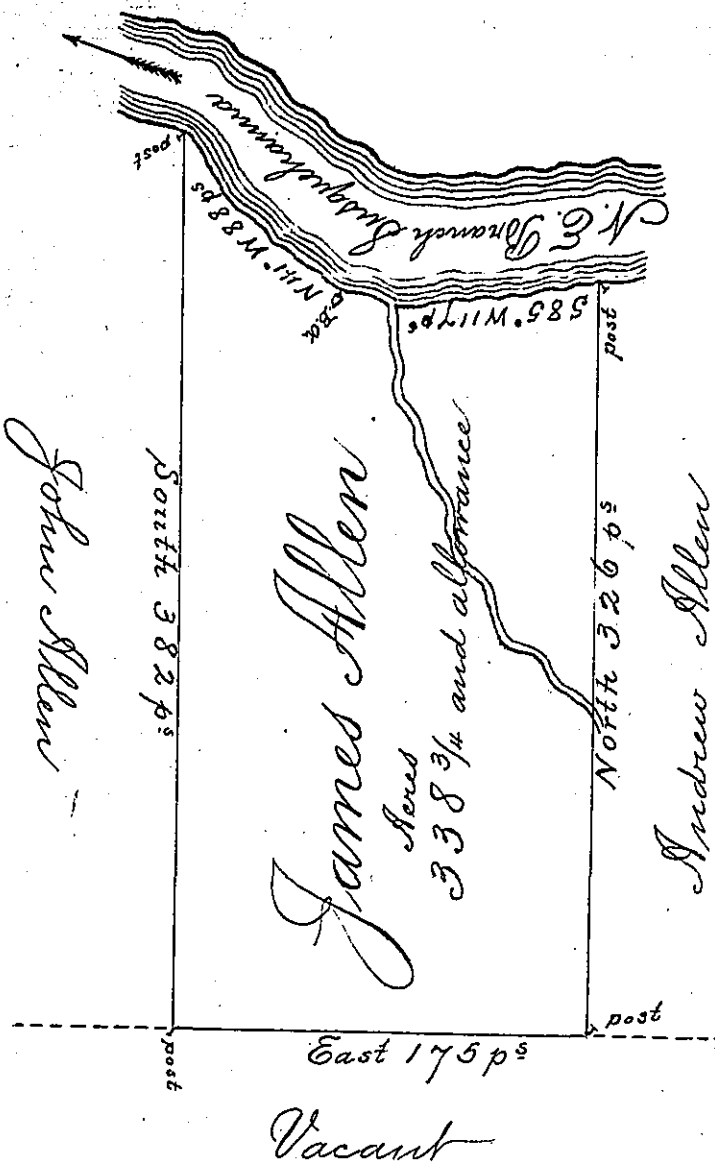 N. E. Branch Susquehanna
post
N 41° W 88 ps
S 85° W 117 ps
post
John Allen
South 382 ps
James Allen
Acres
338 3/4 and allowance
North 326 ps
Andrew Allen
post
East 175 ps
post
Vacant